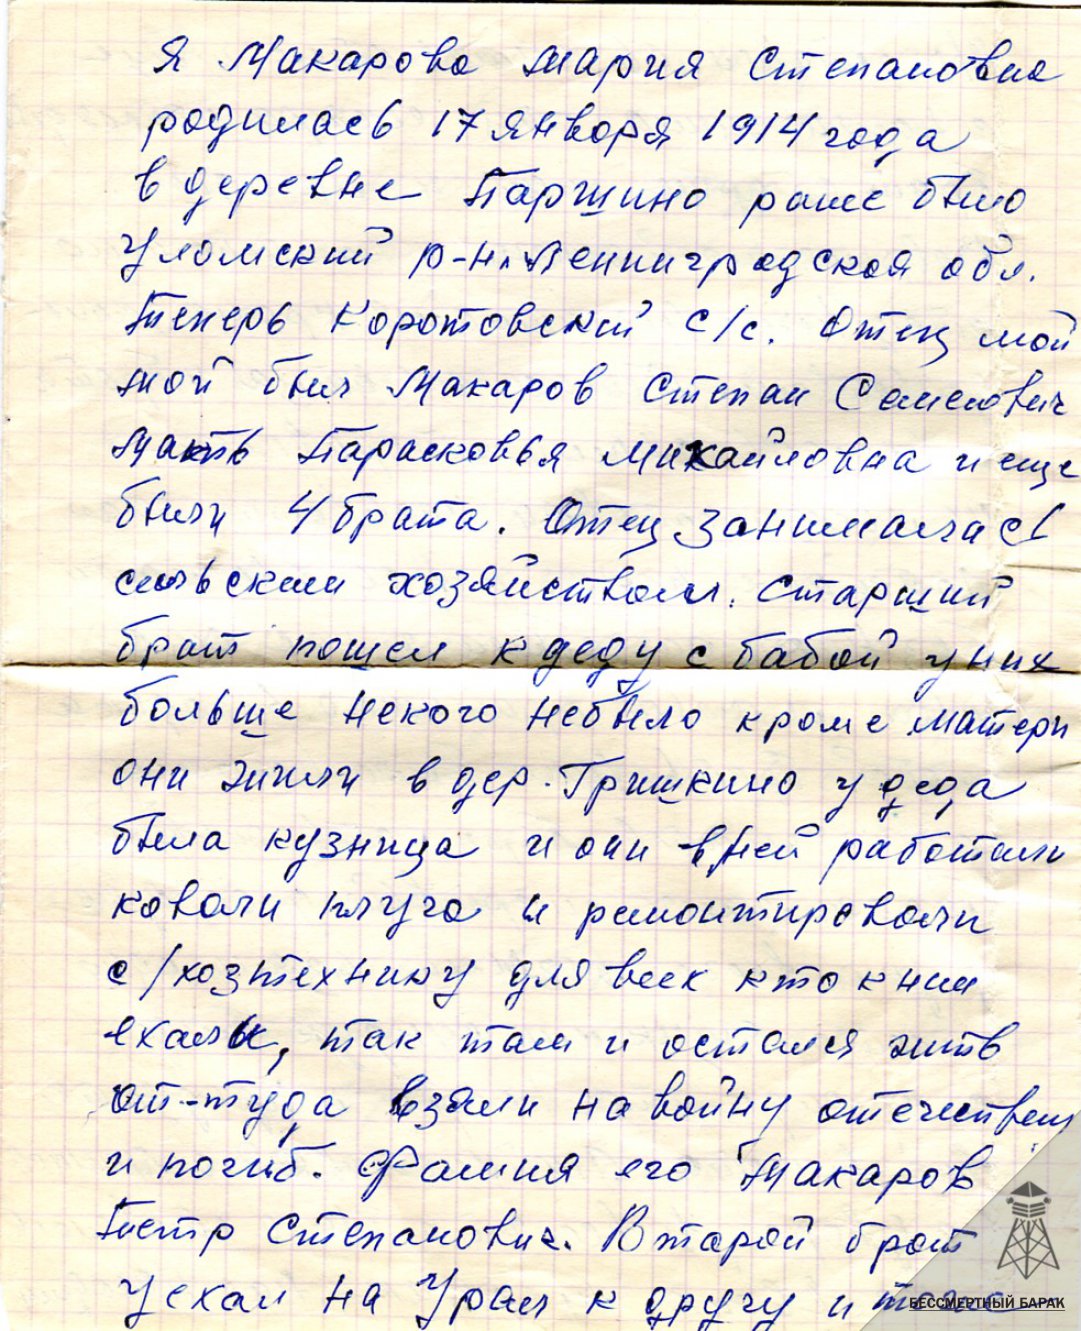 Я Макарова Мария Степановна
родилась 17 января 1914 года
в деревне Паршино ранше было
Уломский р-н. Ленинградская обл.
Теперь Коротовский с/с. Отец мой
мой был Макаров Степан Семенович
Мать Парасковья Михайловна и еще
были 4 брата. Отец занимался с
сельским хозяйством. Старший
брат пошел к деду с бабой у них
больше некого небыло кроме матери
они жили в дер. Гришкино у деда
была кузница и они в ней работали
ковали плуга и ремонтировали
с/хозтехнику для всех кто к ним
ехали, так там и остался жить
от-туда взяли на войну отечествен
и погиб. Фамилия его Макаров
Петр Степанович. Второй брат
уехал на Урал к другу и
БЕССМЕРТНЫЙ БАРАК